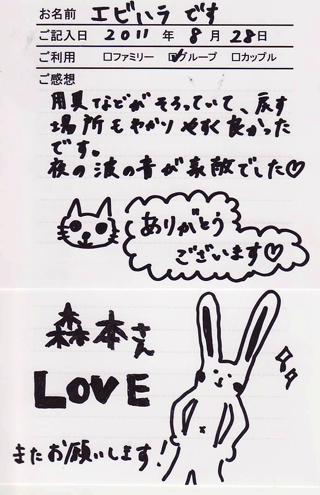 お名前 エビハラ です
ご記入日 2011 年 8 月 28 日
ご利用 □ファミリー ☑グループ □カップル
ご感想
用具などがそろっていて、戻す
場所もわかりやすく良かった
です。
夜の波の音が素敵でした♡
ありがとう
ございます♡
森本さん
LOVE
またお願いします！